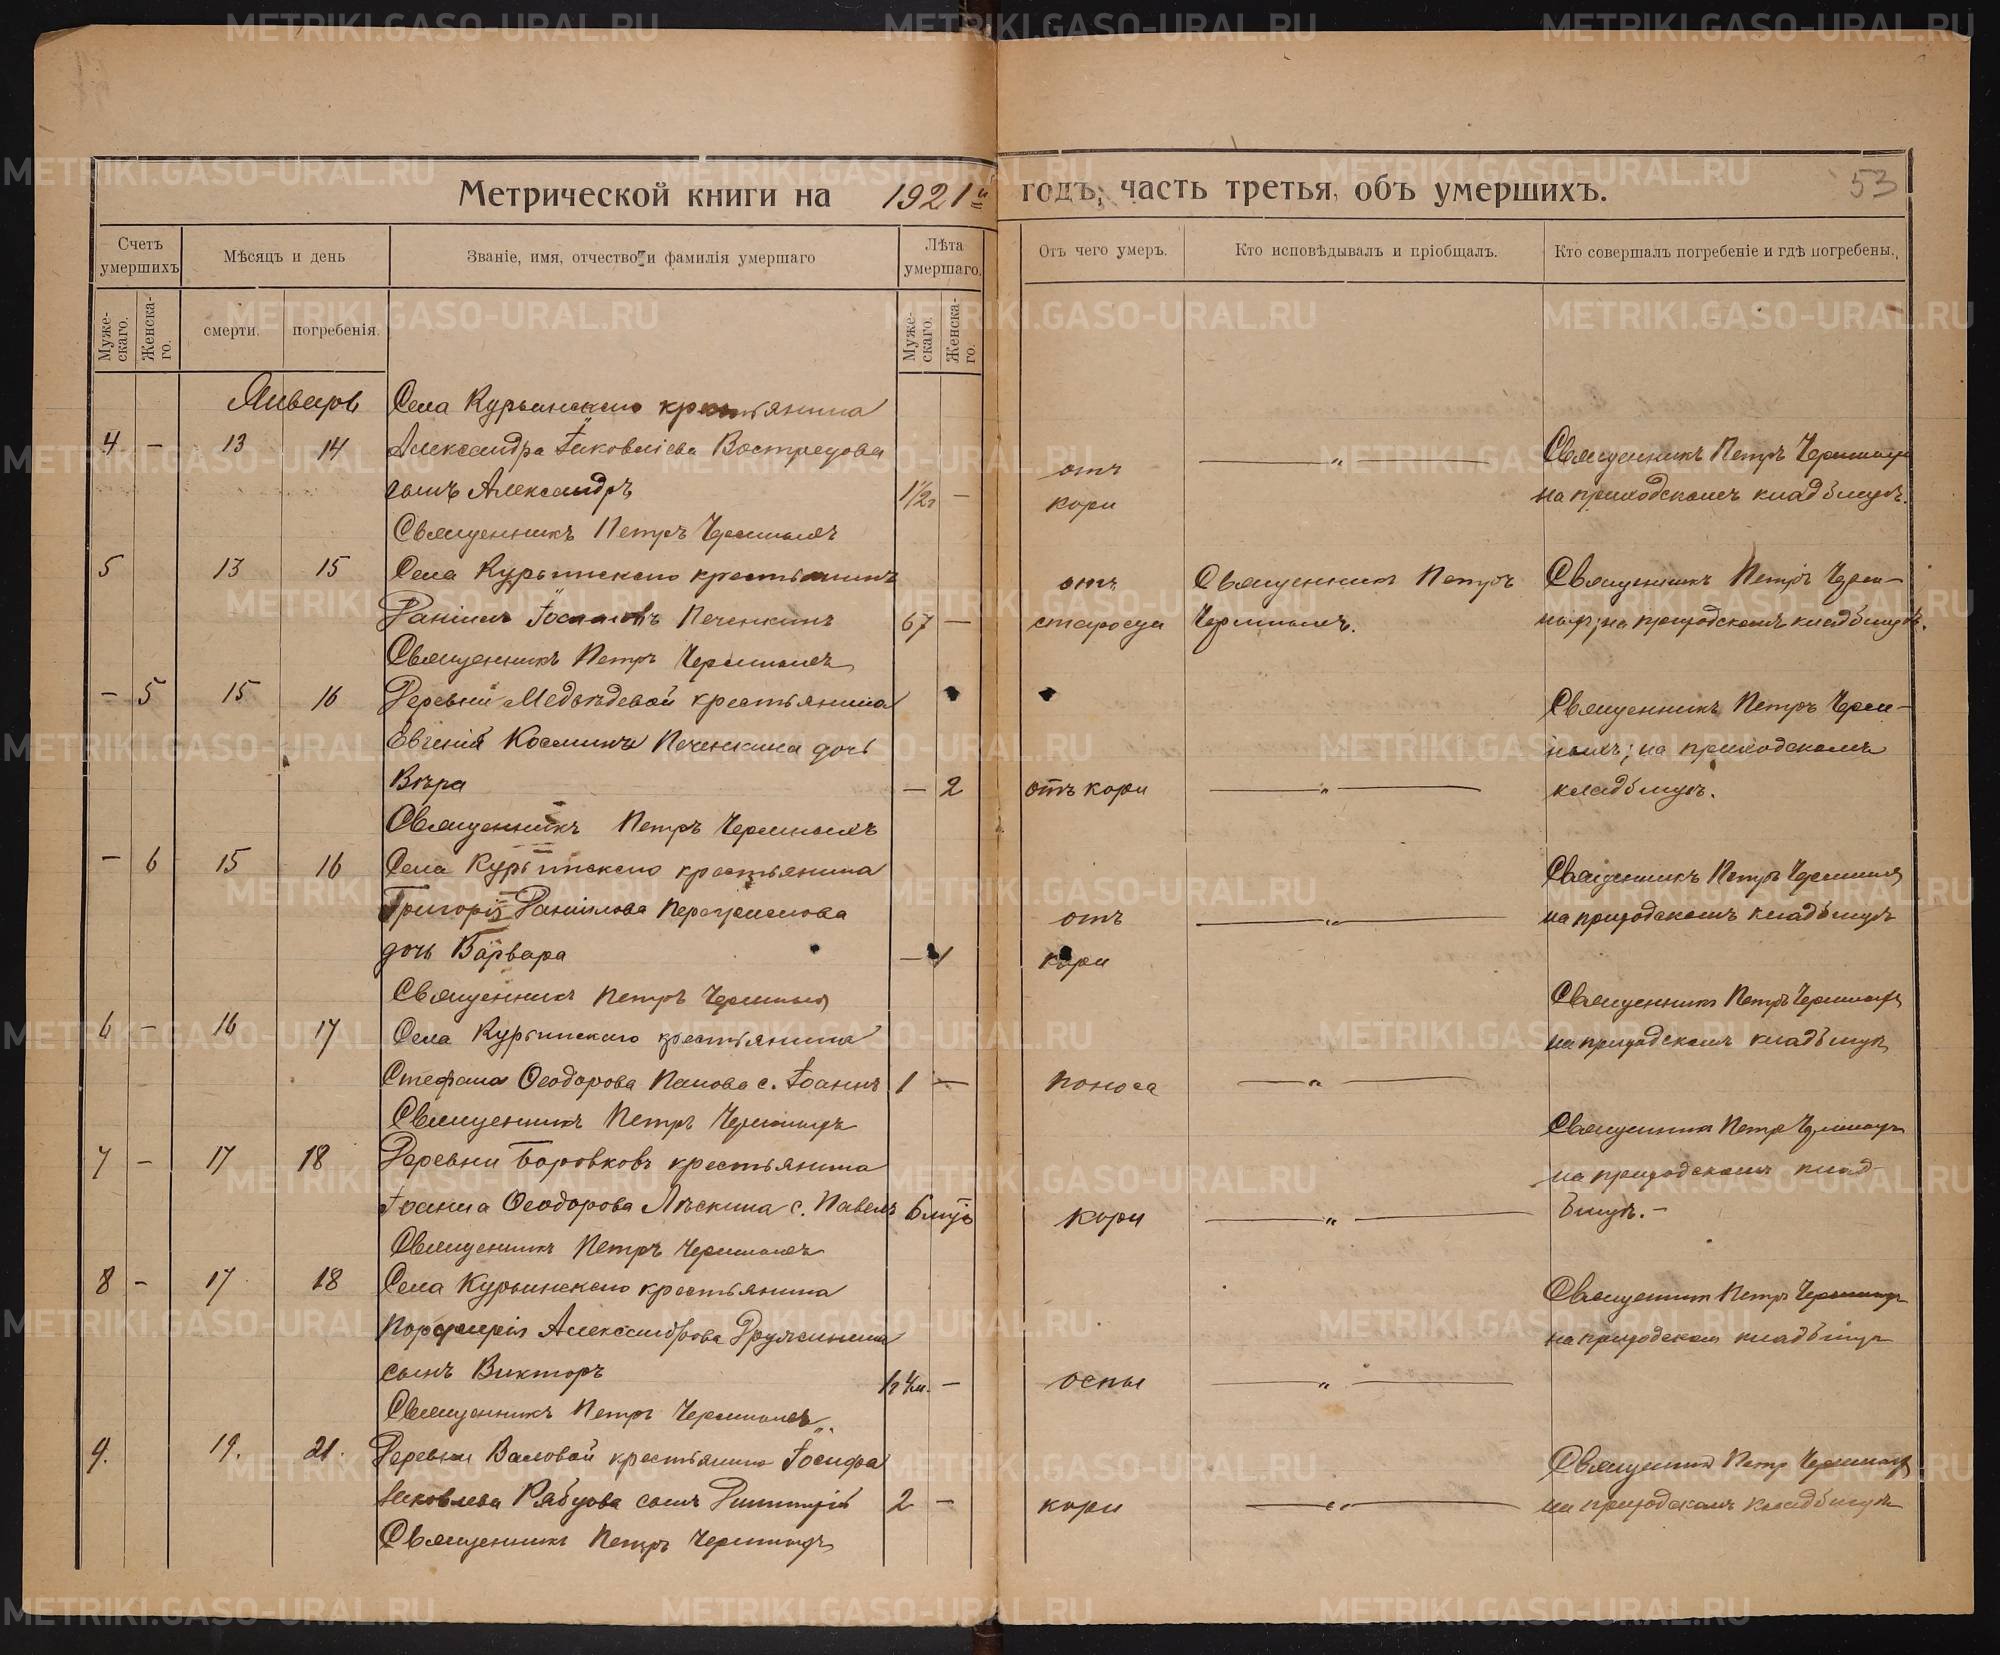 Метрической книги на 1921й годъ, часть третья, объ умершихъ.
53
Счетъ умершихъ
Мѣсяцъ и день
Званіе, имя, отчество и фамилія умершаго
Лѣта умершаго.
Отъ чего умеръ.
Кто исповѣдывалъ и пріобщалъ.
Кто совершалъ погребеніе и гдѣ погребены.
Муже-скаго.
Женска-го.
смерти.
погребенія.
Муже-скаго.
Женска-го.
Январь
Села Курьинскаго крестьянина
4 — 13 14 Александра Іаковлева Вострецова
сынъ Александръ 1½г —
отъ
кори
—„—
Священникъ Петръ Черемныхъ
на приходскомъ кладбищѣ.
Священникъ Петръ Черемныхъ
5 13 15 Села Курьинскаго крестьянинъ
Даніилъ Печенкинъ 67 —
отъ
старости
Священникъ Петръ
Черемныхъ.
Священникъ Петръ Черем-
ныхъ; на приходскомъ кладбищѣ.
Священникъ Петръ Черемныхъ
— 5 15 16 Деревни Медвѣдевой крестьянина
Евгенія Космина Печенкина дочь
Вѣра — 2
отъ кори
—„—
Священникъ Петръ Черем-
ныхъ; на приходскомъ
кладбищѣ.
Священникъ Петръ Черемныхъ
— 6 15 16 Села Курьинскаго крестьянина
Григорія Даніилова
дочь Варвара — 1
отъ
кори
—„—
Священникъ Петръ Черемныхъ
на приходскомъ кладбищѣ
Священникъ Петръ Черемныхъ
6 — 16 17 Села Курьинскаго крестьянина
Стефана Ѳеодорова Попова с. Іоаннъ 1 —
поноса
—„—
Священникъ Петръ Черемныхъ
на приходскомъ кладбищѣ
Священникъ Петръ Черемныхъ
7 — 17 18 Деревни Боровковъ крестьянина
Іоанна Ѳеодорова Лѣскина с. Павелъ 6 мцъ
кори
—„—
Священникъ Петръ Черемныхъ
на приходскомъ клад-
бищѣ.—
Священникъ Петръ Черемныхъ
8 — 17 18 Села Курьинскаго крестьянина
Порфирія Александрова Дружинина
сынъ Викторъ 1г 4м. —
оспы
—„—
Священникъ Петръ Черемныхъ
на приходскомъ кладбищѣ
Священникъ Петръ Черемныхъ
9. 19. 21. Деревни Валовой крестьянина Іосифа
Іаковлева Рябцова сынъ Димитрій 2 —
кори
—„—
Священникъ Петръ Черемныхъ
на приходскомъ кладбищѣ
Священникъ Петръ Черемныхъ
METRIKI.GASO-URAL.RU